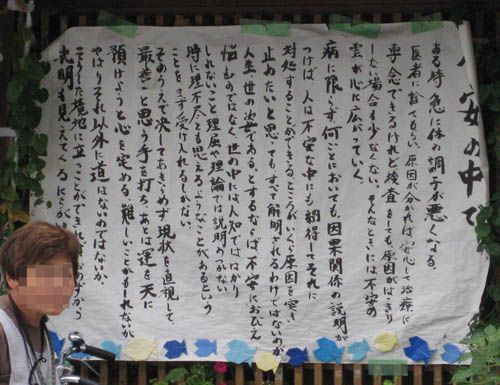 不安の中で
ある時急に体の調子が悪くなる。
医者に診てもらい、原因が分かれば、安心して治療に
専念できるけれど検査をしても、原因がはっきり
しない場合も少なくない。そんなときには不安の
雲が心に広がっていく。
病に限らず、何ごとにおいても、因果関係の説明が
つけば、人は不安な中にも納得してそれに
対処することができる。ところがいくら原因を突き
止めたいと思っても、すべて解明されるわけではないのが、
人生、世の姿である。とするならば不安におびえ
悩むのではなく、世の中には人知でははかり
しれないこと、理屈や理論では説明のつかない
時に理不尽とも思えるようなことがあるという
ことを、まず受け入れるしかない。
そのうえで決してあきらめず現状を直視して、
最善と思う手を打ち、あとは運を天に
預けようと心を定める。難しいことかもしれないが、
やはりそれ以外に道はないのではないか。
そうした境地に立つことができれば、おのずから
光明も見えてくる